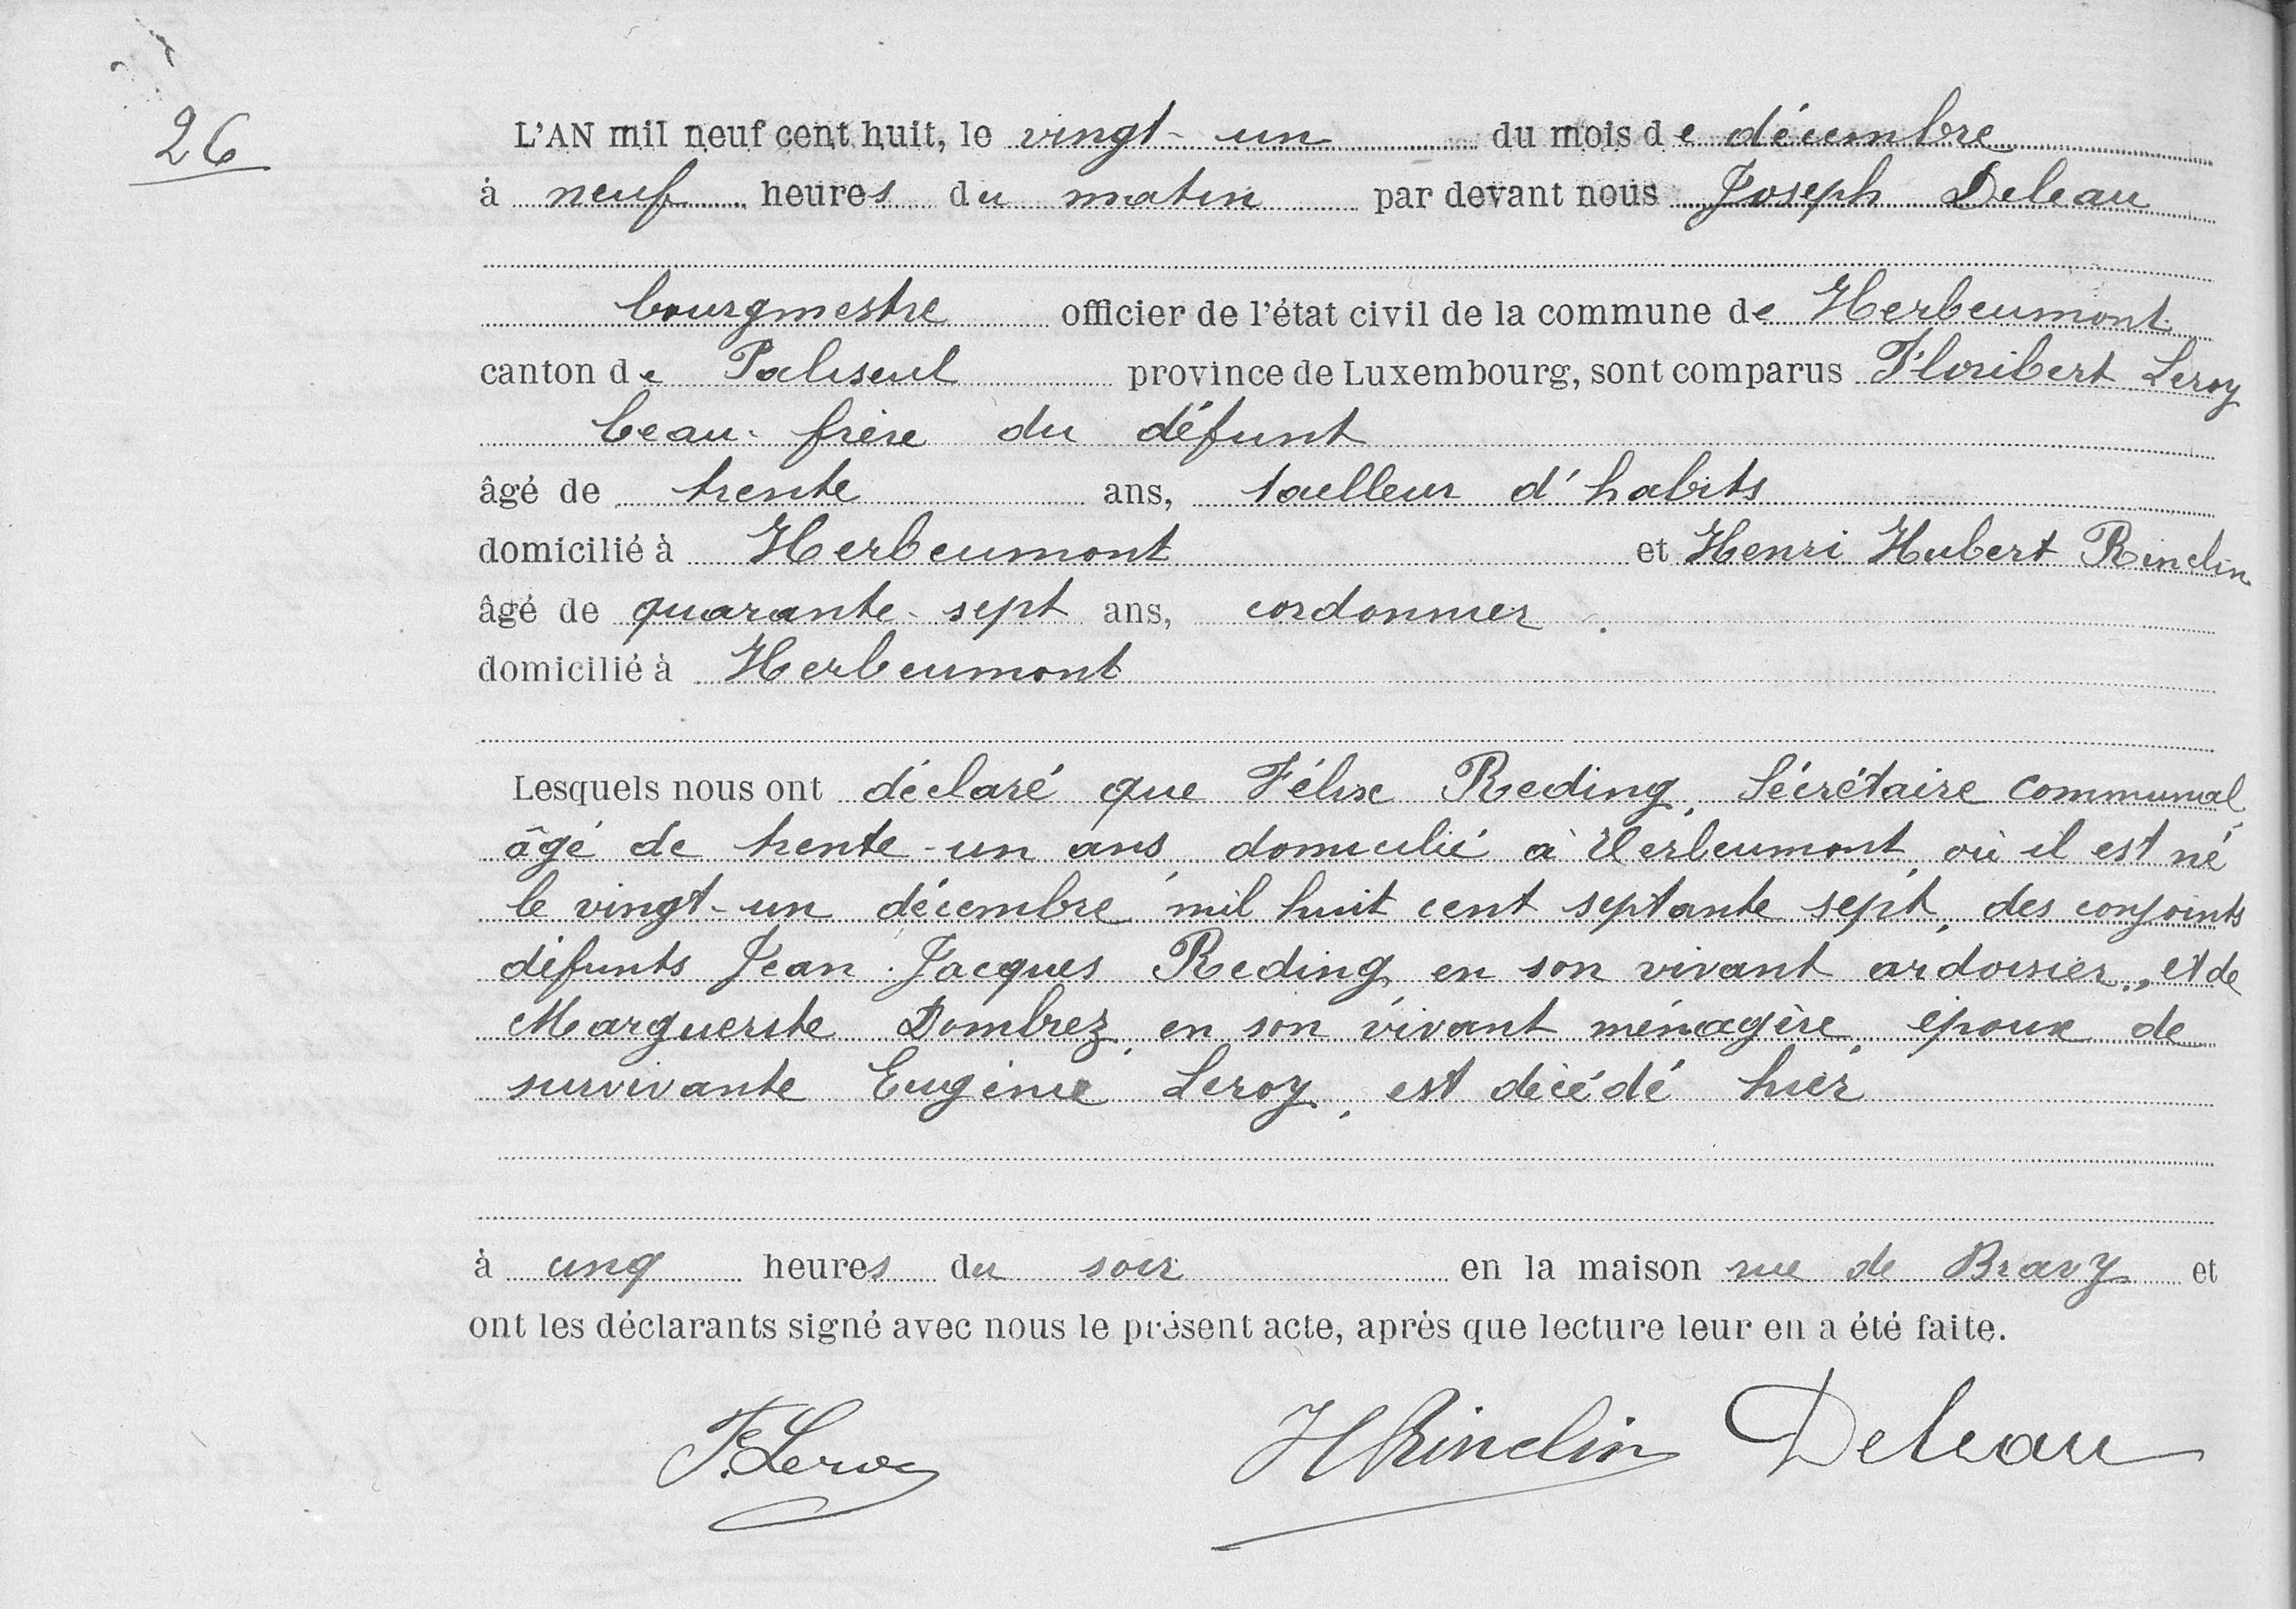 26
L'AN mil neuf cent huit, le vingt-un du mois de décembre
à neuf heures du matin par devant nous Joseph Deleau
bourgmestre officier de l'état civil de la commune de Herbeumont
canton de Paliseul province de Luxembourg, sont comparus Floribert Leroy
beau-frère du défunt
âgé de trente ans, tailleur d'habits
domicilié à Herbeumont et Henri Hubert Rinclin
âgé de quarante-sept ans, cordonnier.
domicilié à Herbeumont
Lesquels nous ont déclaré que Félix Reding, Sécrétaire communal,
âgé de trente-un ans, domicilié à Herbeumont, où il est né
le vingt-un décembre mil huit cent septante sept, des conjoints
défunts Jean-Jacques Reding, en son vivant ardoisier, et de
Marguerite Dombrez, en son vivant ménagère, époux de
survivante Eugénie Leroy, est décédé hier
à cinq heures du soir en la maison rue de Bravy et
ont les déclarants signé avec nous le présent acte, après que lecture leur en a été faite.
F. Leroy HRinclin Deleau